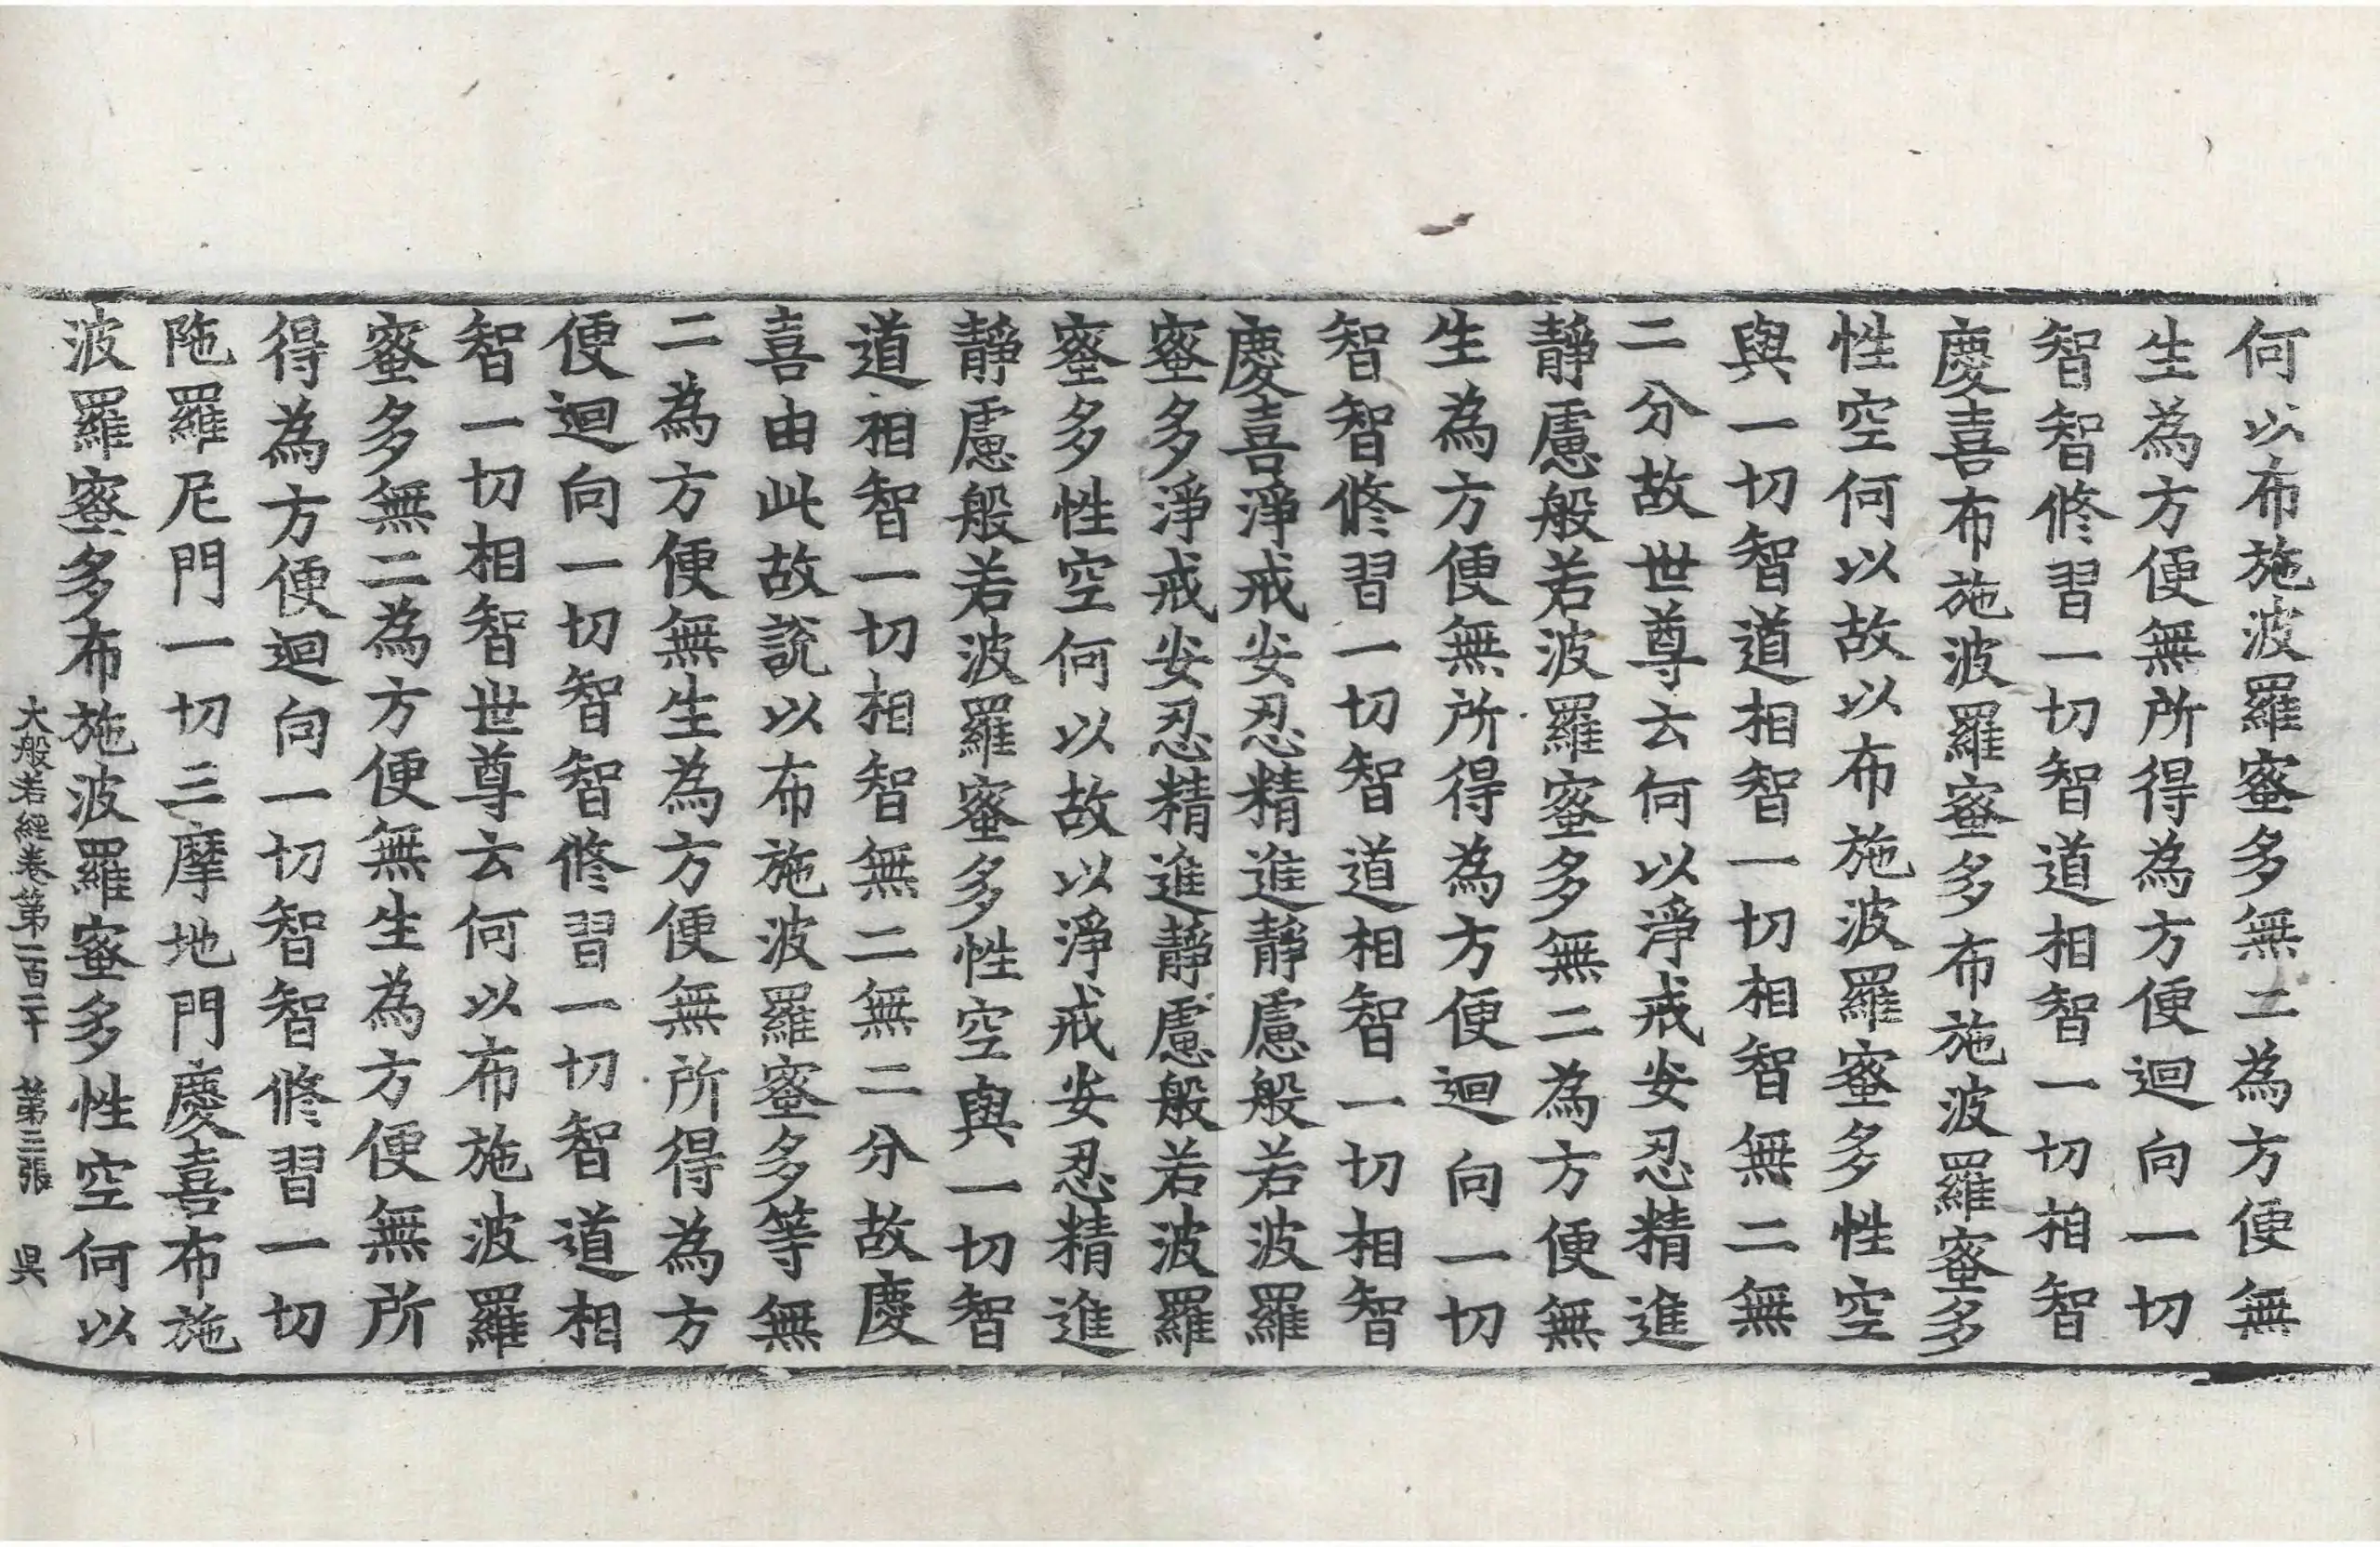 何以布施波羅蜜多無二為方便無
生為方便無所得為方便迴向一切
智智修習一切智道相智一切相智
慶喜布施波羅蜜多布施波羅蜜多
性空何以故以布施波羅蜜多性空
與一切智道相智一切相智無二無
二分故世尊云何以淨戒安忍精進
靜慮般若波羅蜜多無二為方便無
生為方便無所得為方便迴向一切
智智修習一切智道相智一切相智
慶喜淨戒安忍精進靜慮般若波羅
蜜多淨戒安忍精進靜慮般若波羅
蜜多性空何以故以淨戒安忍精進
靜慮般若波羅蜜多性空與一切智
道相智一切相智無二無二分故慶
喜由此故說以布施波羅蜜多等無
二為方便無生為方便無所得為方
便迴向一切智智修習一切智道相
智一切相智世尊云何以布施波羅
蜜多無二為方便無生為方便無所
得為方便迴向一切智智修習一切
陁羅尼門一切三摩地門慶喜布施
波羅蜜多布施波羅蜜多性空何以
大般若經卷第一百二十 第三張 昃